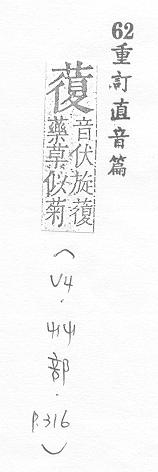 62重訂直音篇
蕧
音伏蔙蕧
藥草似菊
(V4.艸部.P.316)